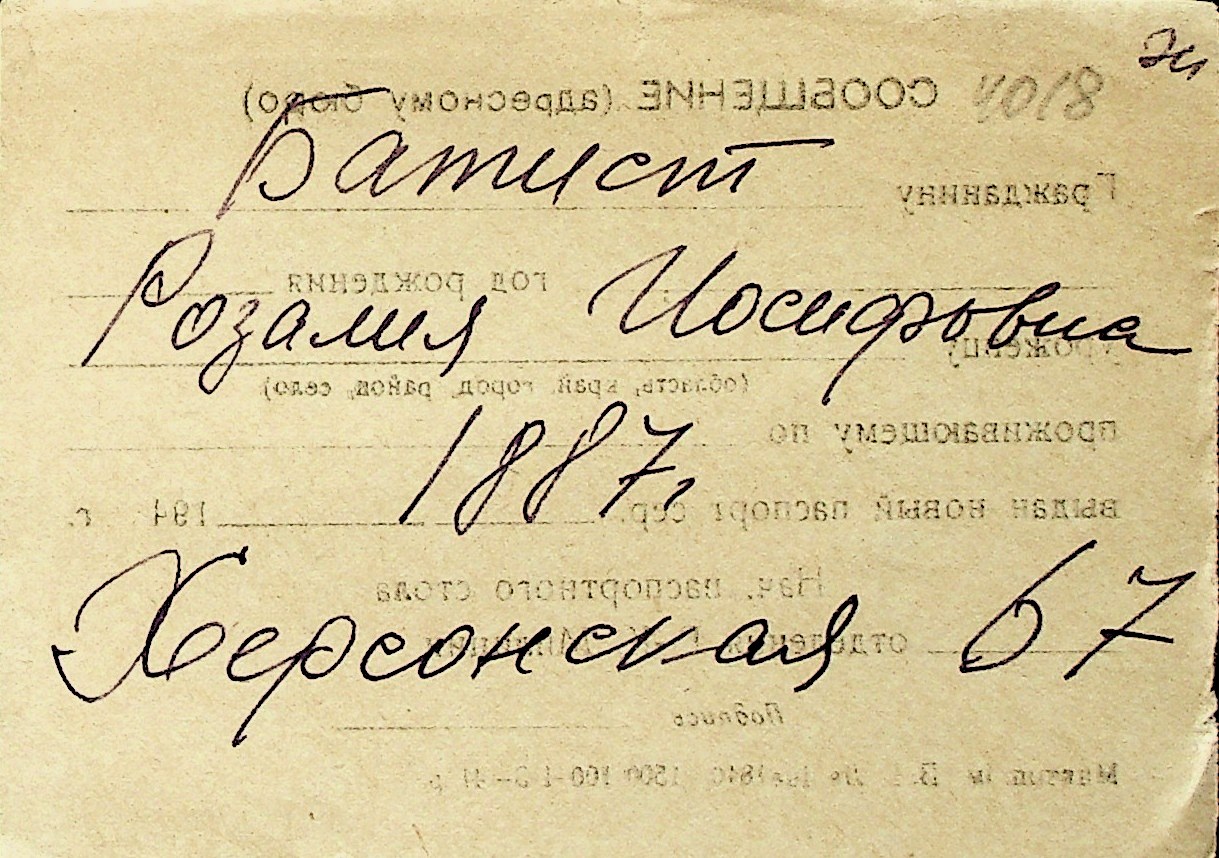 Эи
4018
СООБЩЕНИЕ (адресному бюро)
Батист
Гражданину
Розалия Иосифовна
год рождения
уроженцу
(область, край, город, район, село)
1887,
проживающему по
выдан новый паспорт сер. 194 г.
Нач. паспортного стола
Херсонская 67
отделения
Подпись